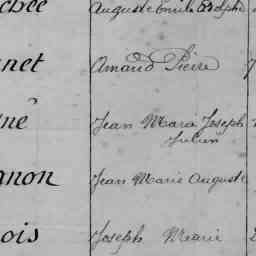 Auguste Emile Adolphe
net Amand Pierre
né Jean Marie Joseph
Julien
non Jean Marie Auguste
ois Joseph Marie